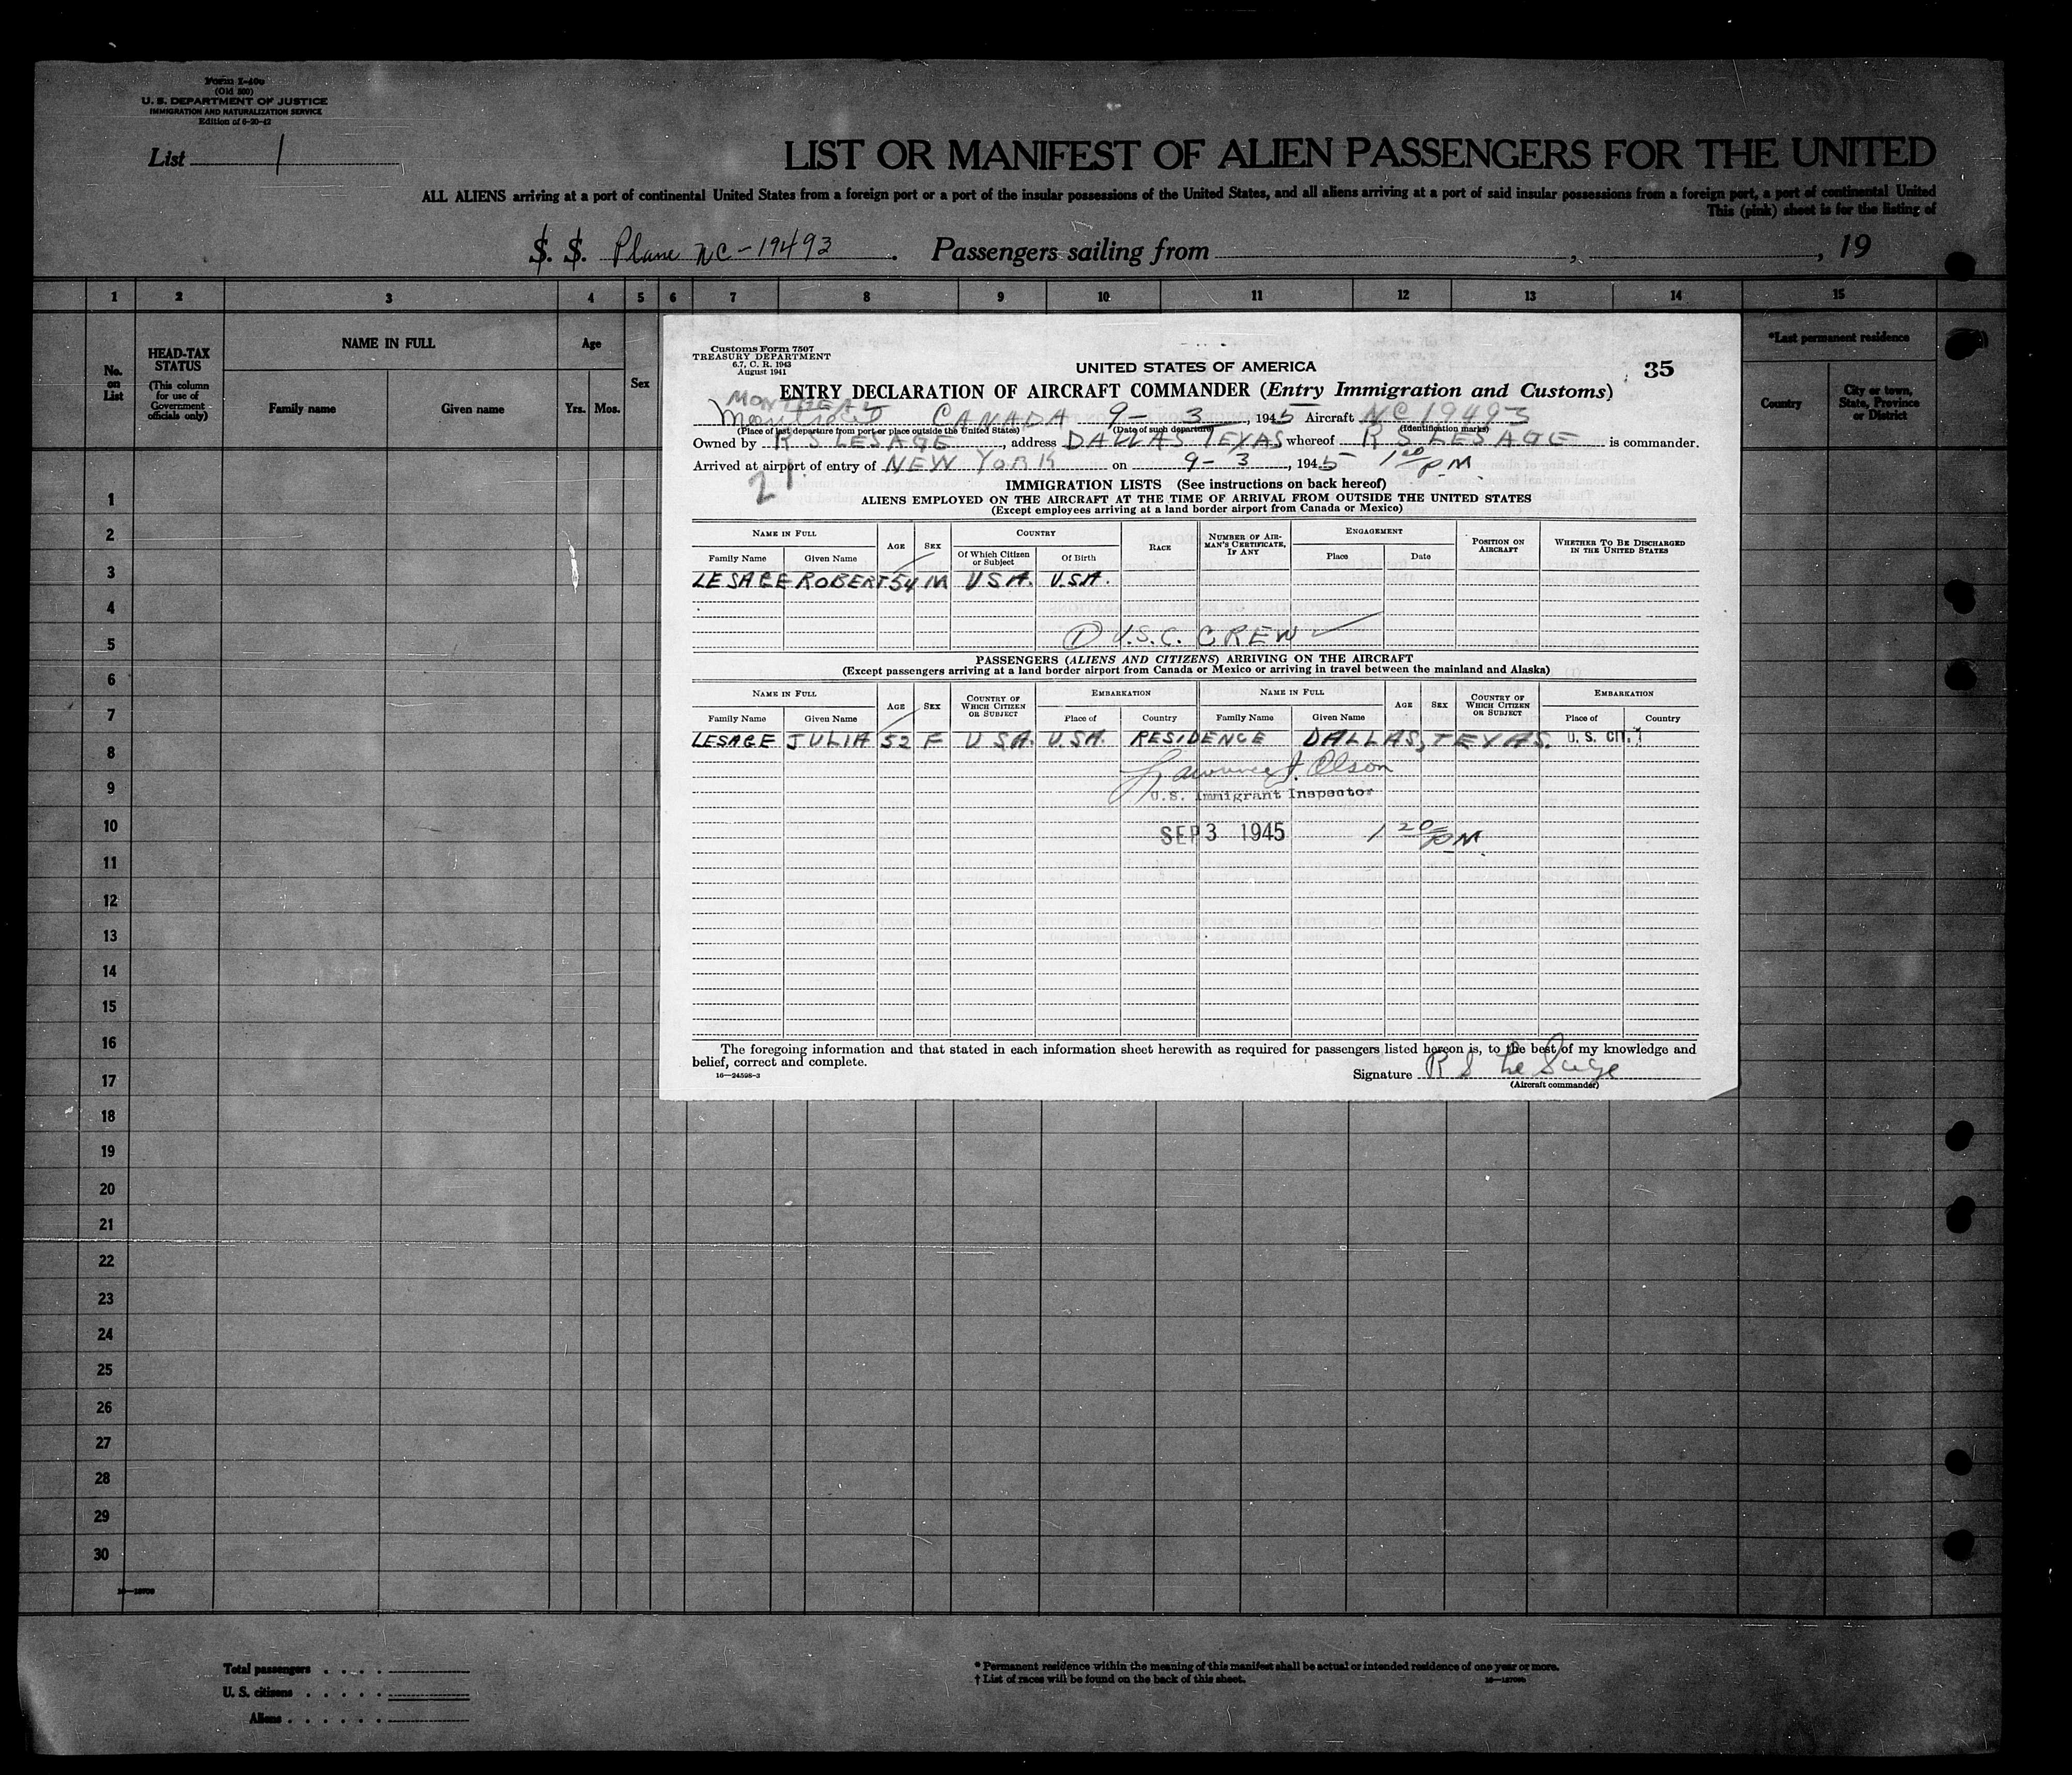 Form I-400
(Old 500)
U. S. DEPARTMENT OF JUSTICE
IMMIGRATION AND NATURALIZATION SERVICE
Edition of 6-20-42
List 1
LIST OR MANIFEST OF ALIEN PASSENGERS FOR THE UNITED
ALL ALIENS arriving at a port of continental United States from a foreign port or a port of the insular possessions of the United States, and all aliens arriving at a port of said insular possessions from a foreign port, a port of continental United
This (pink) sheet is for the listing of
S. S. Plane NC-19493. Passengers sailing from , , 19
1 2 3 4 5 6 7 8 9 10 11 12 13 14 15
No. on List
HEAD-TAX STATUS
(This column for use of Government officials only)
NAME IN FULL
Family name Given name
Age
Yrs. Mos.
Sex
*Last permanent residence
Country
City or town, State, Province or District
Customs Form 7507
TREASURY DEPARTMENT
6.7, C. R. 1943
August 1941
UNITED STATES OF AMERICA
35
ENTRY DECLARATION OF AIRCRAFT COMMANDER (Entry Immigration and Customs)
MONTREAL
Montreal CANADA 9-3, 1945 Aircraft NC19493
(Place of last departure from port or place outside the United States) (Date of such departure) (Identification marks)
Owned by R S LESAGE, address DALLAS TEXAS whereof R S LESAGE is commander.
Arrived at airport of entry of NEW YORK on 9-3, 1945 1 20 PM
21
IMMIGRATION LISTS (See instructions on back hereof)
ALIENS EMPLOYED ON THE AIRCRAFT AT THE TIME OF ARRIVAL FROM OUTSIDE THE UNITED STATES
(Except employees arriving at a land border airport from Canada or Mexico)
NAME IN FULL AGE SEX COUNTRY RACE NUMBER OF AIRMAN'S CERTIFICATE, IF ANY ENGAGEMENT POSITION ON AIRCRAFT WHETHER TO BE DISCHARGED IN THE UNITED STATES
Family Name Given Name Of Which Citizen or Subject Of Birth Place Date
LESAGE ROBERT 54 M U.S.A. U.S.A.
① U.S.C. CREW ✓
PASSENGERS (ALIENS AND CITIZENS) ARRIVING ON THE AIRCRAFT
(Except passengers arriving at a land border airport from Canada or Mexico or arriving in travel between the mainland and Alaska)
NAME IN FULL AGE SEX COUNTRY OF WHICH CITIZEN OR SUBJECT EMBARKATION NAME IN FULL AGE SEX COUNTRY OF WHICH CITIZEN OR SUBJECT EMBARKATION
Family Name Given Name Place of Country Family Name Given Name Place of Country
LESAGE JULIA 52 F U.S.A. U.S.A. RESIDENCE DALLAS, TEXAS. U. S. CIT. 1
Lawrence J. Olson
U.S. Immigrant Inspector
SEP 3 1945 1 20 PM.
The foregoing information and that stated in each information sheet herewith as required for passengers listed hereon is, to the best of my knowledge and
belief, correct and complete.
16—24598-3
Signature R S LeSage
(Aircraft commander)
1
2
3
4
5
6
7
8
9
10
11
12
13
14
15
16
17
18
19
20
21
22
23
24
25
26
27
28
29
30
Total passengers
U. S. citizens
Aliens
* Permanent residence within the meaning of this manifest shall be actual or intended residence of one year or more.
† List of races will be found on the back of this sheet.